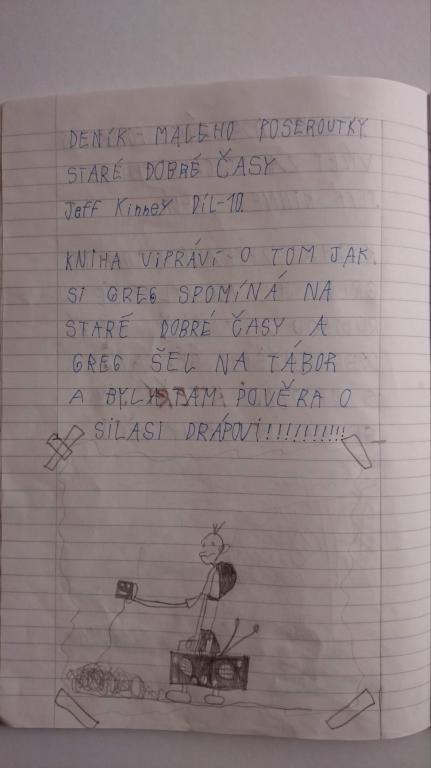 DENÍK MALEHO POSEROUTKY
STARÉ DOBRÉ ČASY
Jeff KinneY DíL-10.
KNIHA ViPRÁVí O TOM JAK
SI GREG SPOMÍNÁ NA
STARÉ DOBRÉ ČASY A
GREG ŠEL NA TÁBOR
A BYLA TAM POVĚRA O
SiLASI DRÁPOVi!!!!!!!!!!